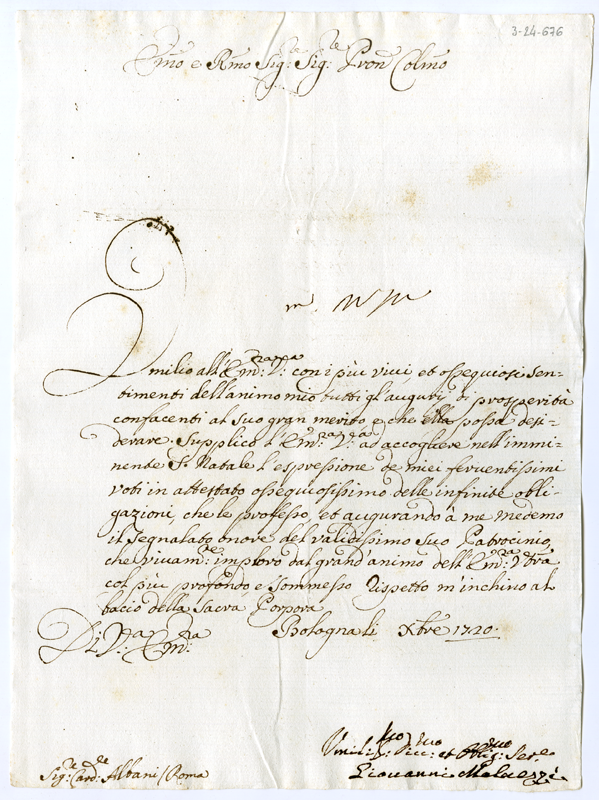 3-24-676
Em̄o e Rm̄o Sig:ʳᵃ Sig:ʳᵉ Pron̄ Colm̄o
Umilio all'Em:ᶻᵃ Vʳᵃ: con i più vivi, et ossequiosi sen-
timenti dell'animo mio tutti gl'augurÿ di prosperità
confacenti al suo gran merito, e che ella possa desi-
derare. Supplico l'Em:ᶻᵃ Vʳᵃ: ad accogliere nell'immi-
nente S. Natale l'espressione de miei ferventissimi
voti in attestato ossequiosissimo delle infinite obli-
gazioni, che le professo, et augurando à me medemo
il segnalato onore del validissimo suo Patrocinio,
che vivam:ᵗᵉ imploro dal grand'animo dell'Em:ᶻᵃ Vʳᵃ
col più profondo e sommesso rispetto m'inchino al
bacio della Sacra Porpora
Di Vʳᵃ: Em:ᶻᵃ Bologna li Xbre 1720.
Umiliss:ᵐᵒ Div:ᵐᵒ et Oblig:ᵐᵒ Ser:ᵉ
Sig:ʳᵉ Card:ˡᵉ Albani / Roma
Giovanni Malvezzi